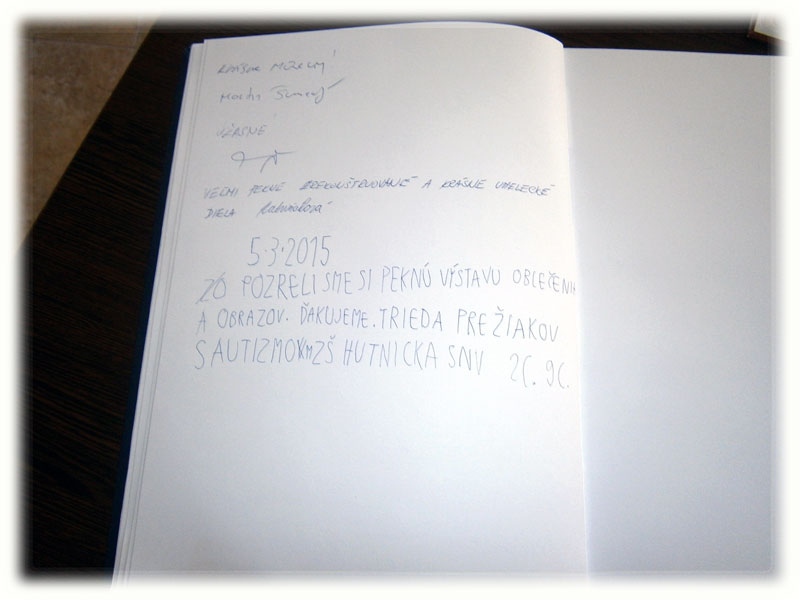 KRÁSNE MÚZEUM!
Martin
ÚŽASNÉ
VEĽMI PEKNE ZREKONŠTRUOVANÉ A KRÁSNE UMELECKÉ
DIELA
5.3.2015
POZRELI SME SI PEKNÚ VÝSTAVU OBLEČENIA
A OBRAZOV. ĎAKUJEME. TRIEDA PRE ŽIAKOV
S AUTIZMOM ZŠ HUTNICKA SNV 2C. 9C.